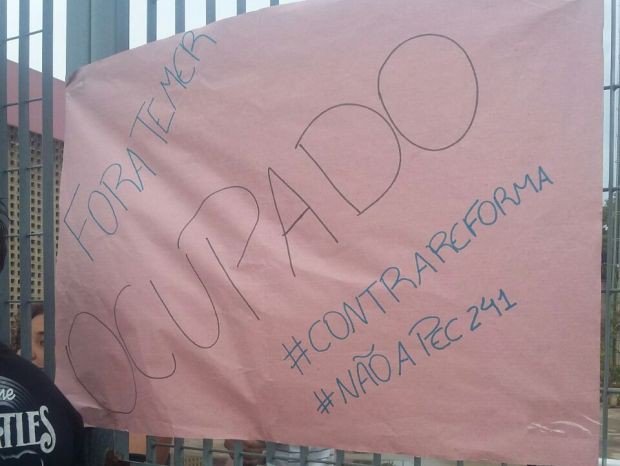 FORA TEMER
OCUPADO
#CONTRAREFORMA
#NÃO A PEC 241